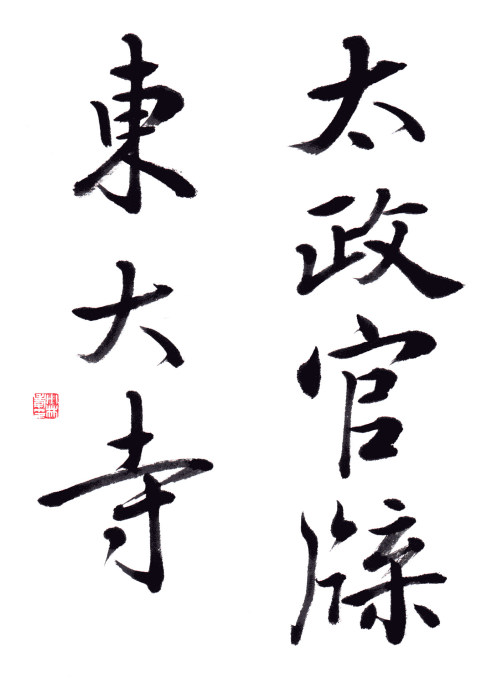 太政官牒
東大寺